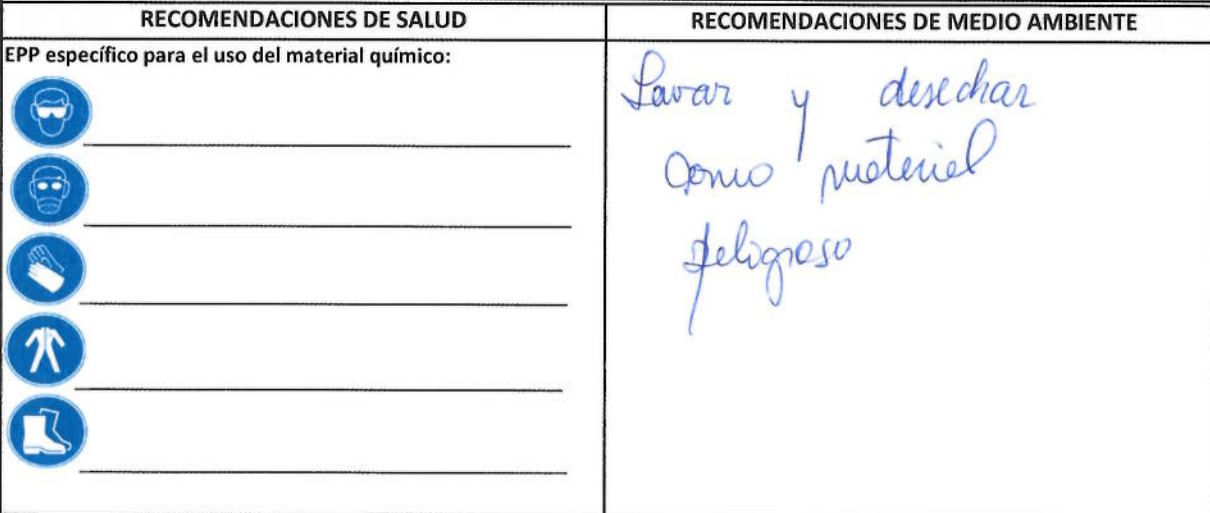 RECOMENDACIONES DE SALUD
RECOMENDACIONES DE MEDIO AMBIENTE
EPP específico para el uso del material químico:
Lavar y desechar
como material
peligroso